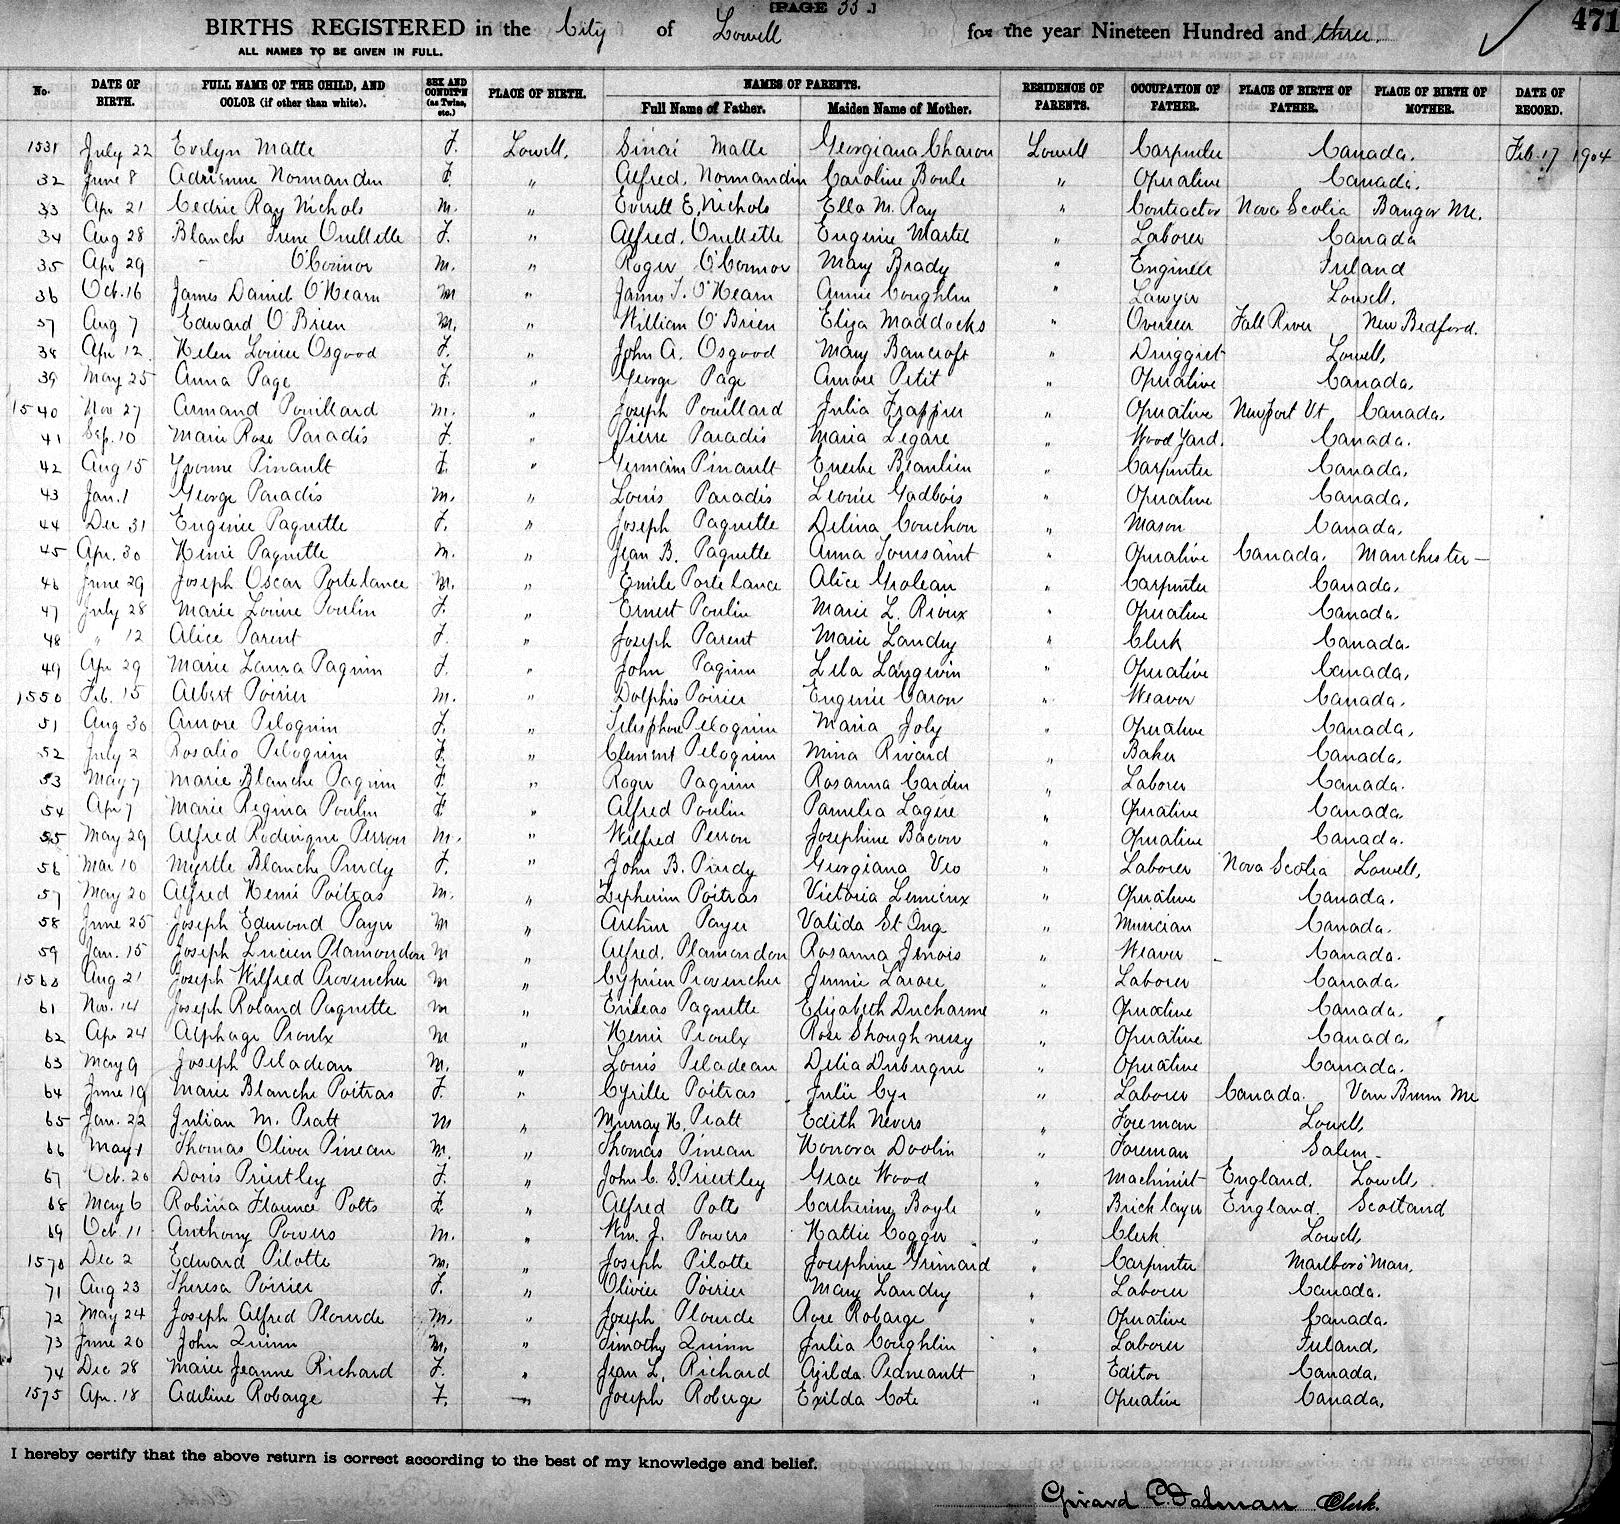 [PAGE 33.]
471
BIRTHS REGISTERED in the City of Lowell for the year Nineteen Hundred and three.
ALL NAMES TO BE GIVEN IN FULL.
No. DATE OF BIRTH. FULL NAME OF THE CHILD, AND COLOR (if other than white). SEX AND CONDIT'N (as Twins, etc.) PLACE OF BIRTH. NAMES OF PARENTS. Full Name of Father. Maiden Name of Mother. RESIDENCE OF PARENTS. OCCUPATION OF FATHER. PLACE OF BIRTH OF FATHER. PLACE OF BIRTH OF MOTHER. DATE OF RECORD.
1531 July 22 Evelyn Matte F. Lowell, Sinai Matte Georgiana Charon Lowell Carpenter Canada. Feb. 17 1904
32 June 8 Adrienne Normandin F. " Alfred. Normandin Caroline Boule " Operative Canada.
33 Apr 21 Cedric Ray Nichols M. " Everett E. Nichols Ella M. Ray " Contractor Nova Scotia Bangor Me.
34 Aug 28 Blanche Irene Ouellette F. " Alfred. Ouellette Eugenie Martel " Laborer Canada
35 Apr 29 - O'Connor M. " Roger O'Connor Mary Brady " Engineer Ireland
36 Oct. 16 James Daniel O'Hearn M " James J. O'Hearn Annie Coughlin " Lawyer Lowell,
37 Aug 7 Edward O'Brien M. " William O'Brien Eliza Maddocks " Overseer Fall River New Bedford.
38 Apr 12 Helen Louise Osgood F. " John A. Osgood Mary Bancroft " Druggist Lowell,
39 May 25 Anna Page F. " George Page Amore Petit " Operative Canada,
1540 Nov 27 Armand Pouillard M. " Joseph Pouillard Julia Frappier " Operative Newport Vt Canada,
41 Sep. 10 Marie Rose Paradis F. " Pierre Paradis Maria Legare " Wood Yard. Canada.
42 Aug 15 Yvonne Pinault F. " Germain Pinault Beaulieu " Carpenter Canada,
43 Jan. 1 George Paradis M. " Louis Paradis Leonie Gadbois " Operative Canada,
44 Dec 31 Eugenie Paquette F. " Joseph Paquette Delina Couchon " Mason Canada,
45 Apr. 30 Henri Paquette M. " Jean B. Paquette Anna Toussaint " Operative Canada. Manchester —
46 June 29 Joseph Oscar Portelance M. " Emile Portelance Alice Groleau " Carpenter Canada.
47 July 28 Marie Louise Poulin F. " Ernest Poulin Marie L. Rioux " Operative Canada.
48 " 12 Alice Parent F. " Joseph Parent Marie Landry " Clerk Canada.
49 Apr 29 Marie Laura Paquin F. " John Paquin Lela Langevin " Operative Canada,
1550 Feb. 15 Albert Poirier M. " Dolphis Poirier Eugenie Caron " Weaver Canada.
51 Aug 30 Amore Peloquin F. " Telisphore Peloquin Maria Joly " Operative Canada,
52 July 2 Rosalio Peloquin F. " Clement Peloquin Mina Rivard " Baker Canada.
53 May 7 Marie Blanche Paquin F. " Roger Paquin Rosanna Cardin " Laborer Canada.
54 Apr 7 Marie Regina Poulin F. " Alfred Poulin Pamelia Lagere " Operative Canada.
55 May 29 Alfred Rodrique Perron M. " Wilfred Perron Josephine Bacon " Operative Canada.
56 Mar 10 Myrtle Blanche Purdy F. " John B. Purdy Georgiana Vio " Laborer Nova Scotia Lowell,
57 May 20 Alfred Henri Poitras M. " Zepherim Poitras Victoria Lemieux " Operative Canada.
58 June 25 Joseph Edmond Payer M " Arthur Payer Valida St Ong " Musician Canada.
59 Jan. 15 Joseph Lucien Plamondon M " Alfred. Plamondon Rosanna Jervois " Weaver Canada.
1560 Aug 21 Joseph Wilfred Provencher M " Cyprien Provencher Jennie Larose " Laborer Canada.
61 Nov. 14 Joseph Roland Paquette M " Eudeas Paquette Elizabeth Ducharme " Operative Canada.
62 Apr 24 Alphage Proulx M " Henri Proulx Rose Shoughnesy " Operative Canada.
63 May 9 Joseph Peladeau M. " Louis Peladeau Delia Dubuque " Operative Canada.
64 June 19 Marie Blanche Poitras F. " Cyrille Poitras Julie Cyr " Laborer Canada. Van Buren Me
65 Jan. 22 Julian M. Pratt M " Murray H. Pratt Edith Nevers " Foreman Lowell,
66 May 1 Thomas Oliver Pineau M. " Thomas Pineau Honora Doolin " Foreman Salem -
67 Oct. 26 Doris Priestley F. " John C. S. Priestley Grace Wood " Machinist England. Lowell,
68 May 6 Robina Florence Potts F. " Alfred Potts Catherine Boyle " Brick layer England. Scotland
69 Oct 11 Anthony Powers M. " Wm. J. Powers Hattie Cogger " Clerk Lowell,
1570 Dec 2 Edward Pilotte M. " Joseph Pilotte Josephine Grimard " Carpenter Marlboro Mass.
71 Aug 23 Theresa Poirier F. " Olivier Poirier Mary Landry " Laborer Canada.
72 May 24 Joseph Alfred Plourde M. " Joseph Plourde Rose Robarge " Operative Canada.
73 June 20 John Quinn M. " Timothy Quinn Julia Coughlin " Laborer Ireland,
74 Dec 28 Marie Jeanne Richard F. " Jean L. Richard Azilda Pedneault " Editor Canada,
1575 Apr. 18 Adeline Robarge F. " Joseph Roberge Exilda Cote " Operative Canada,
I hereby certify that the above return is correct according to the best of my knowledge and belief.
Girard P. Dadman Clerk.